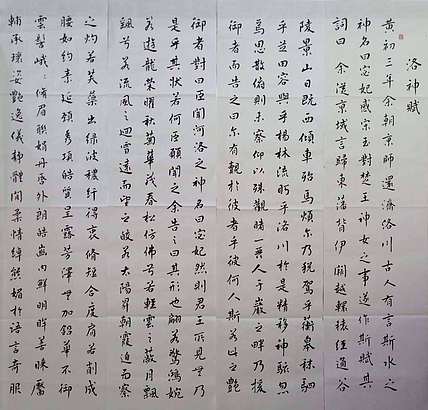 洛神賦
黄初三年余朝京師還濟洛川古人有言斯水之
神名曰宓妃感宋玉對楚王神女之事遂作斯賦其
詞曰 余從京域言歸東藩背伊闕越轘轅經通谷
陵景山日既西傾車殆馬煩爾乃税駕乎蘅皋秣駟
乎芝田容與乎楊林流眄乎洛川於是精移神駭忽
焉思散俯則未察仰以殊觀睹一麗人于巖之畔乃援
御者而告之曰爾有覿於彼者乎彼何人斯若此之艷
御者對曰臣聞河洛之神名曰宓妃然則君王所見無乃
是乎其狀若何臣願聞之余告之曰其形也翩若驚鴻婉
若遊龍榮曜秋菊華茂春松仿佛兮若輕雲之蔽月飄
飖兮若流風之迴雪遠而望之皎若太陽昇朝霞迫而察
之灼若芙蕖出緑波襛纖得衷修短合度肩若削成
腰如約素延頸秀項皓質呈露芳澤無加鉛華不御
雲髻峨峨修眉聯娟丹唇外朗皓齒内鮮明眸善睞靨
輔承瓌姿艷逸儀静體閑柔情綽態媚於語言奇服